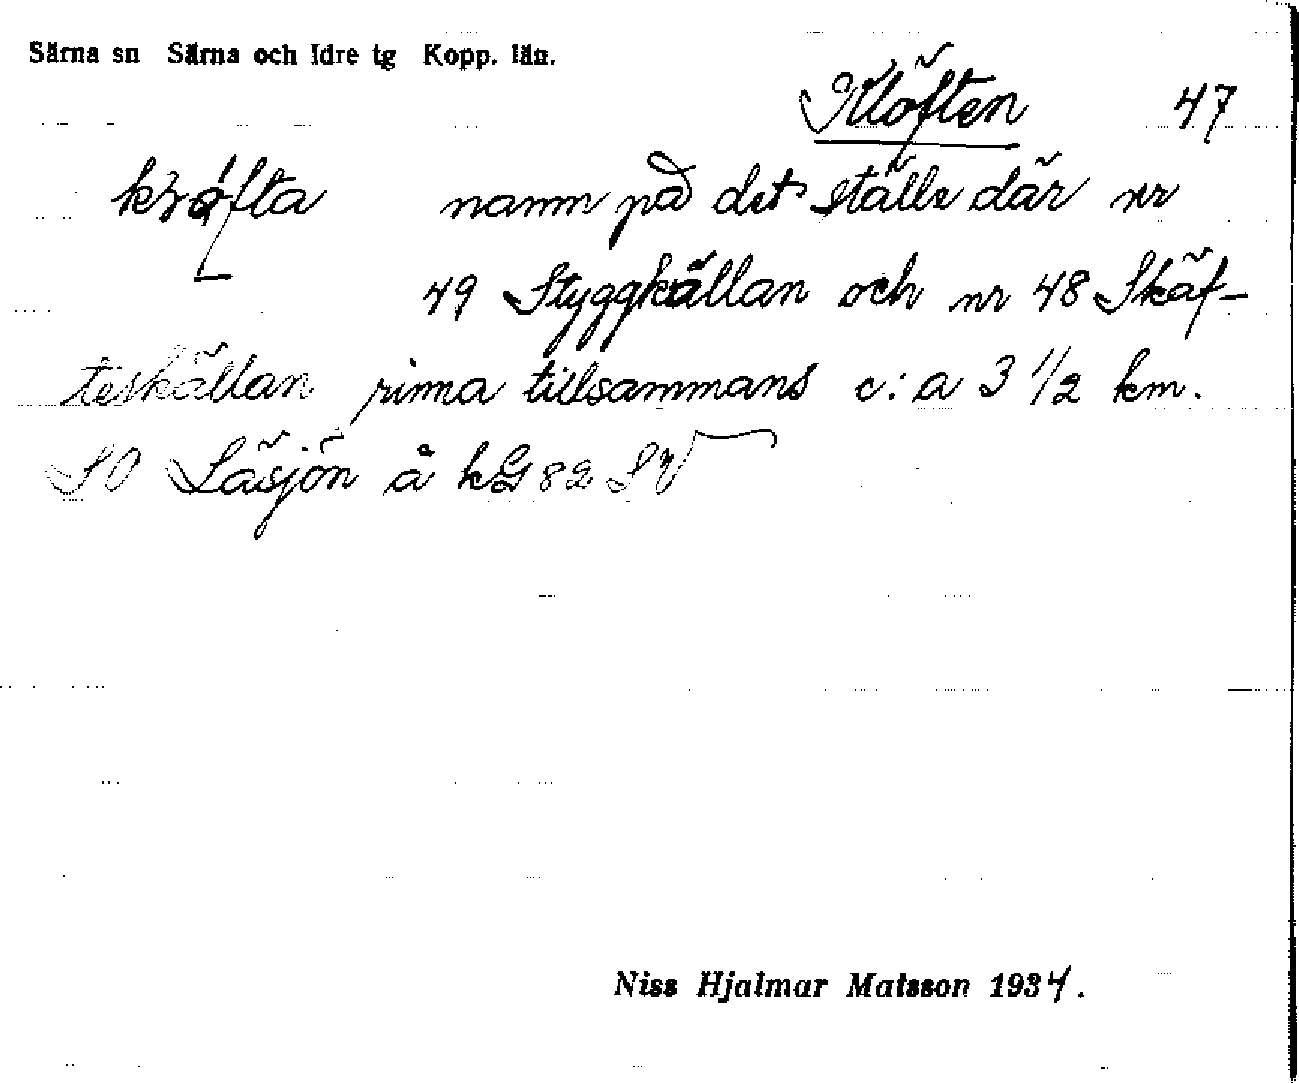 Särna sn Särna och Idre tg Kopp. län.
Klöften 47
namn på det ställe där nr
49 Styggkällan och nr 48 Skäf-
teskällan rinna tillsammans c:a 3 1/2 km.
SO Läsjön å kG 82 SV
Niss Hjalmar Matsson 1934.